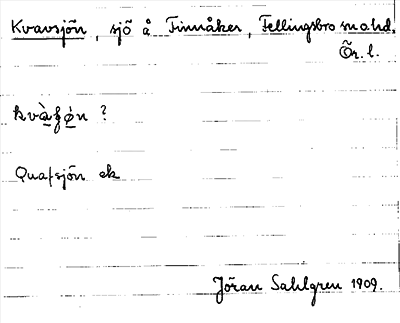 Kvavsjön, sjö å Finnåker, Fellingsbro sn o. hd,
Ör. l.
?
Quafsjön ek
Jöran Sahlgren 1909.